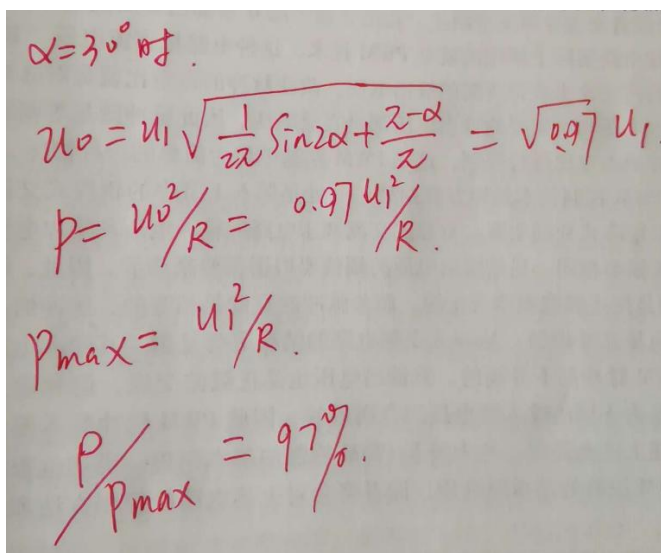 α=30°时.
U0 = U1 √(1/2π sin2α + π-α/π) = √0.97 U1.
P = U0²/R = 0.97U1²/R.
Pmax = U1²/R.
P/Pmax = 97%